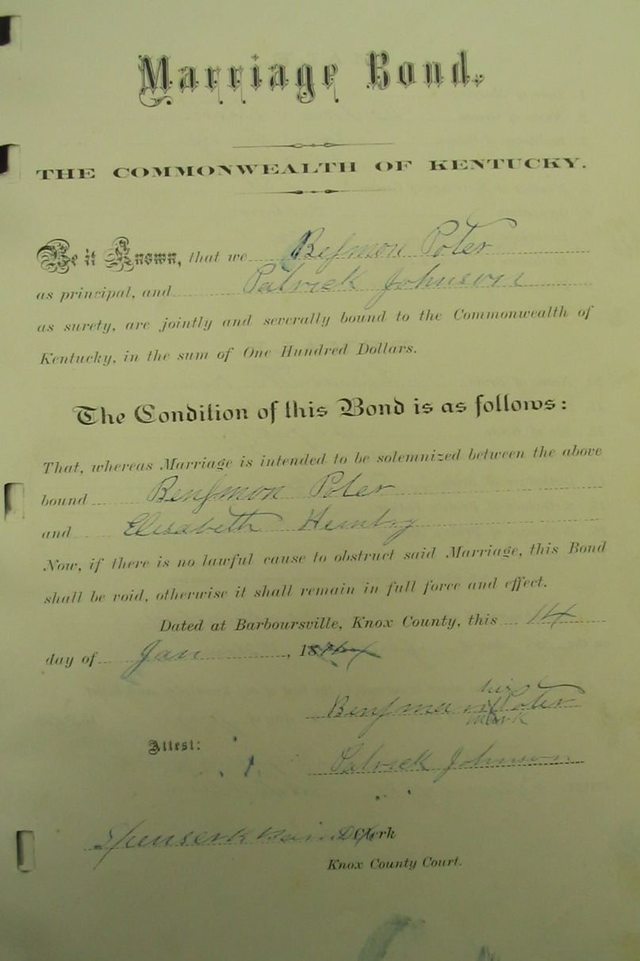 Marriage Bond.
THE COMMONWEALTH OF KENTUCKY.
Be it Known, that we Benjmon Poter
as principal, and Patrick Johnson
as surety, are jointly and severally bound to the Commonwealth of
Kentucky, in the sum of One Hundred Dollars.
The Condition of this Bond is as follows:
That, whereas Marriage is intended to be solemnized between the above
bound Benjmon Poter
and Elisabeth
Now, if there is no lawful cause to obstruct said Marriage, this Bond
shall be void, otherwise it shall remain in full force and effect.
Dated at Barboursville, Knox County, this 14
day of Jan, 18
his
Benjmon Poter
mark
Attest:
Patrick Johnson
Clerk
Knox County Court.